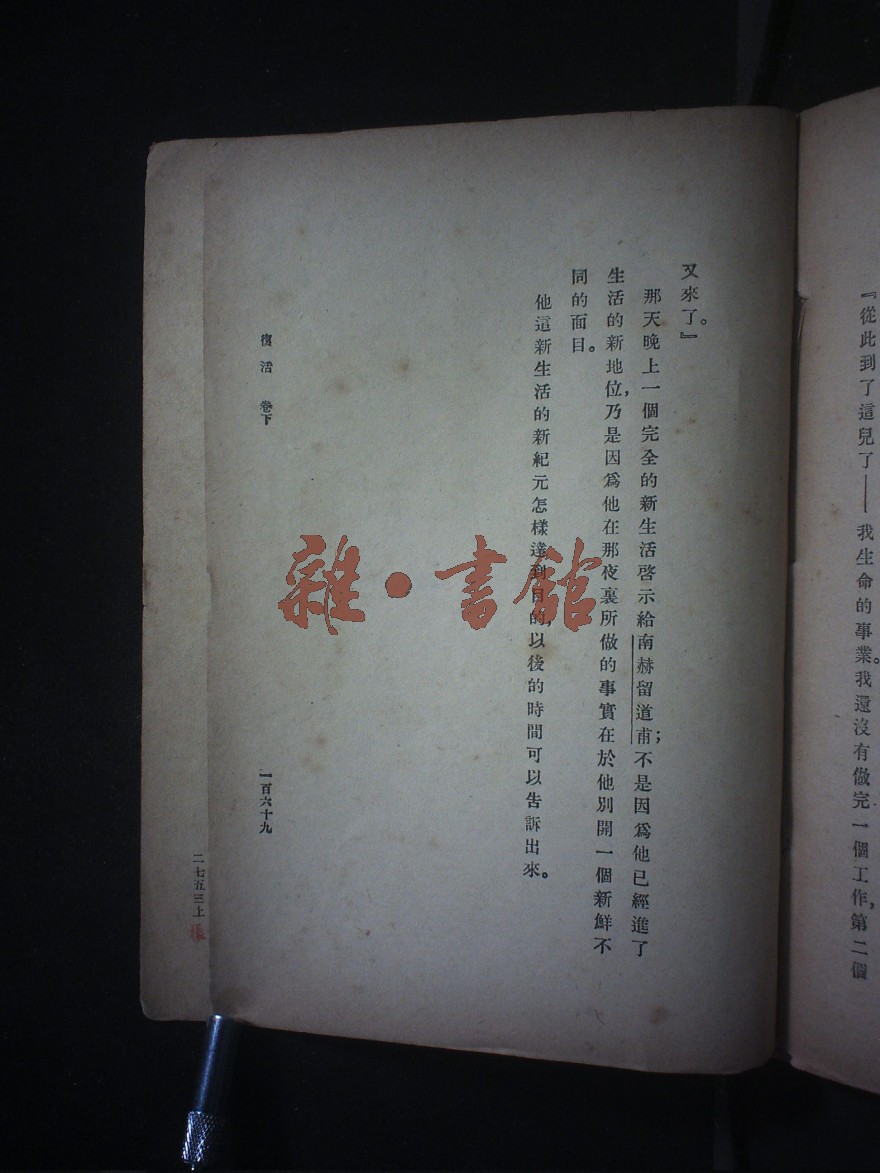 『從此到了這兒了——我生命的事業。我還沒有做完一個工作，第二個
又來了。』
那天晚上一個完全的新生活啓示給南赫留道甫；不是因爲他已經進了
生活的新地位，乃是因爲他在那夜裏所做的事實在於他別開一個新鮮不
同的面目。
他這新生活的新紀元怎樣達到目的，以後的時間可以告訴出來。
復活 卷下
一百六十九
二七五三上
張
雜·書館